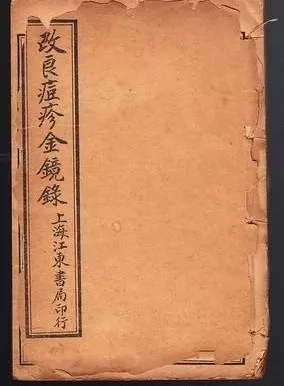 改良痘疹金鏡錄
上海江東書局印行